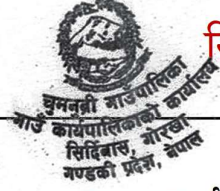 चुमनुव्री गाउँपालिका
गाउँ कार्यपालिकाको कार्यालय
सिर्दिबास, गोरखा
गण्डकी प्रदेश, नेपाल